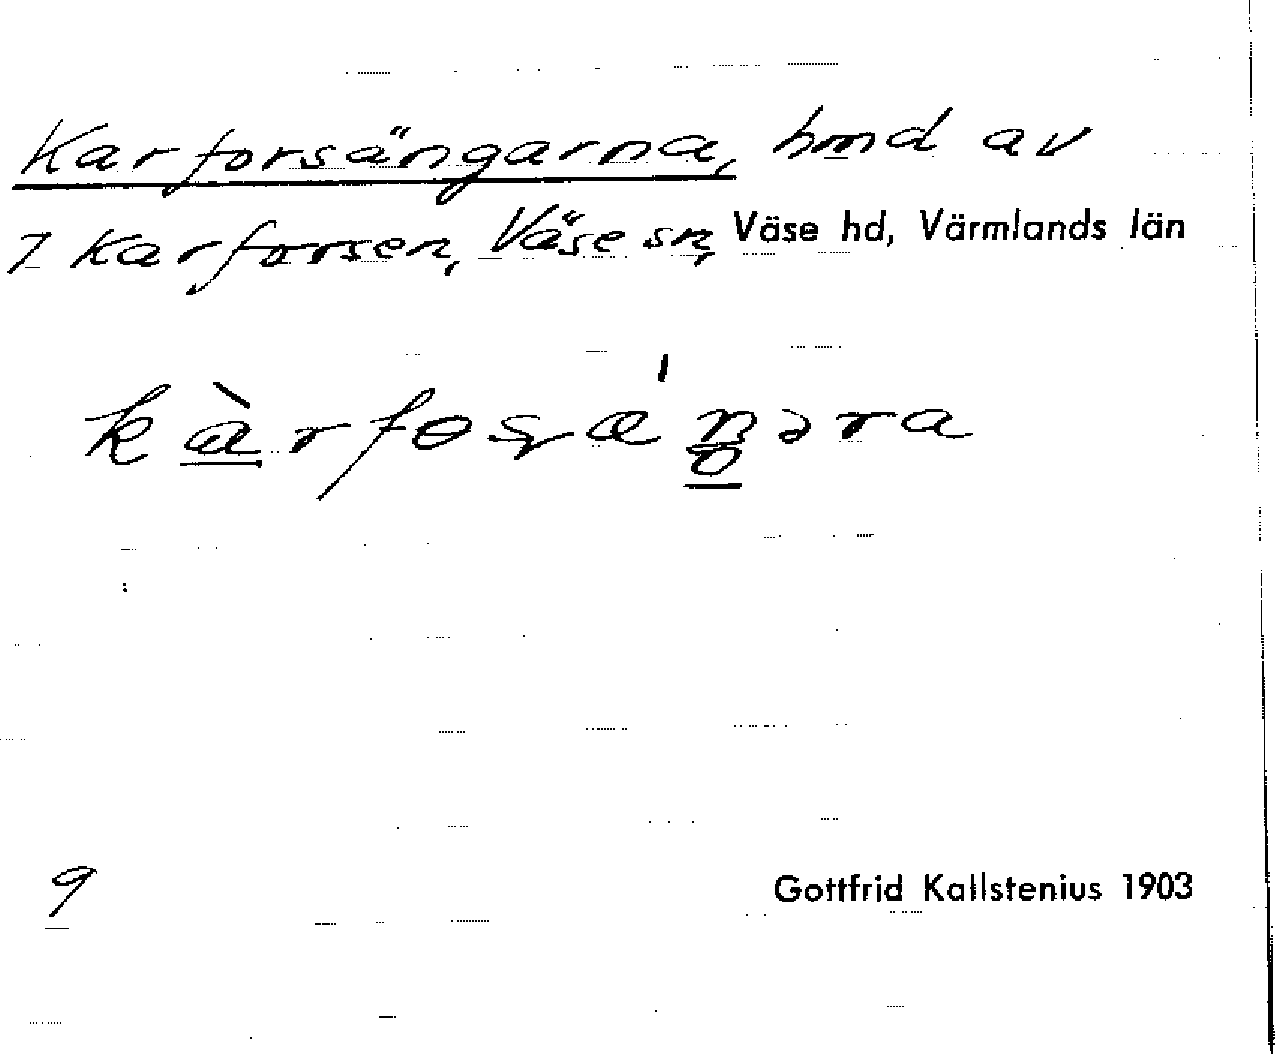 Karforsängarna, hmd av
7 Karforsen, Väse sn, Väse hd, Värmlands län
9
Gottfrid Kallstenius 1903